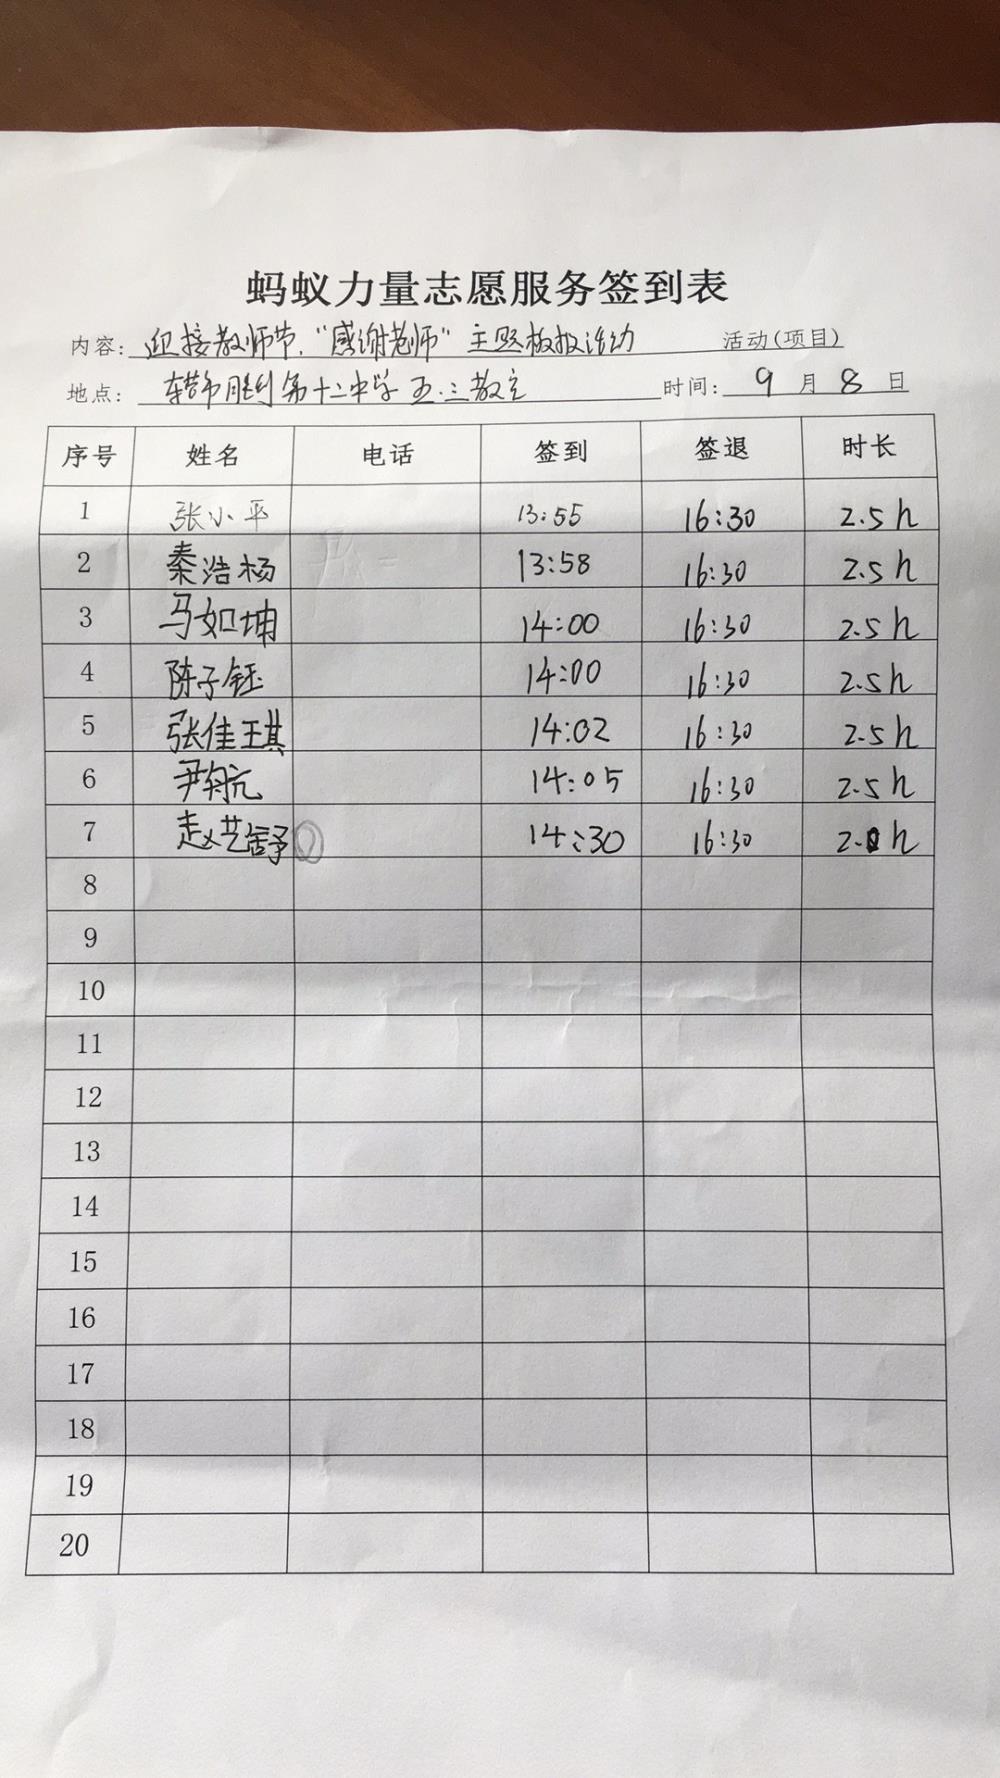 蚂蚁力量志愿服务签到表
内容: 迎接教师节."感谢老师"主题板报活动 活动(项目)
地点: 第十二中学 五.三教室 时间: 9 月 8 日
序号 姓名 电话 签到 签退 时长
1 张小平 13:55 16:30 2.5h
2 秦浩杨 13:58 16:30 2.5h
3 马如坤 14:00 16:30 2.5h
4 陈子钰 14:00 16:30 2.5h
5 张佳琪 14:02 16:30 2.5h
6 尹航 14:05 16:30 2.5h
7 赵艺舒 14:30 16:30 2.0h
8
9
10
11
12
13
14
15
16
17
18
19
20